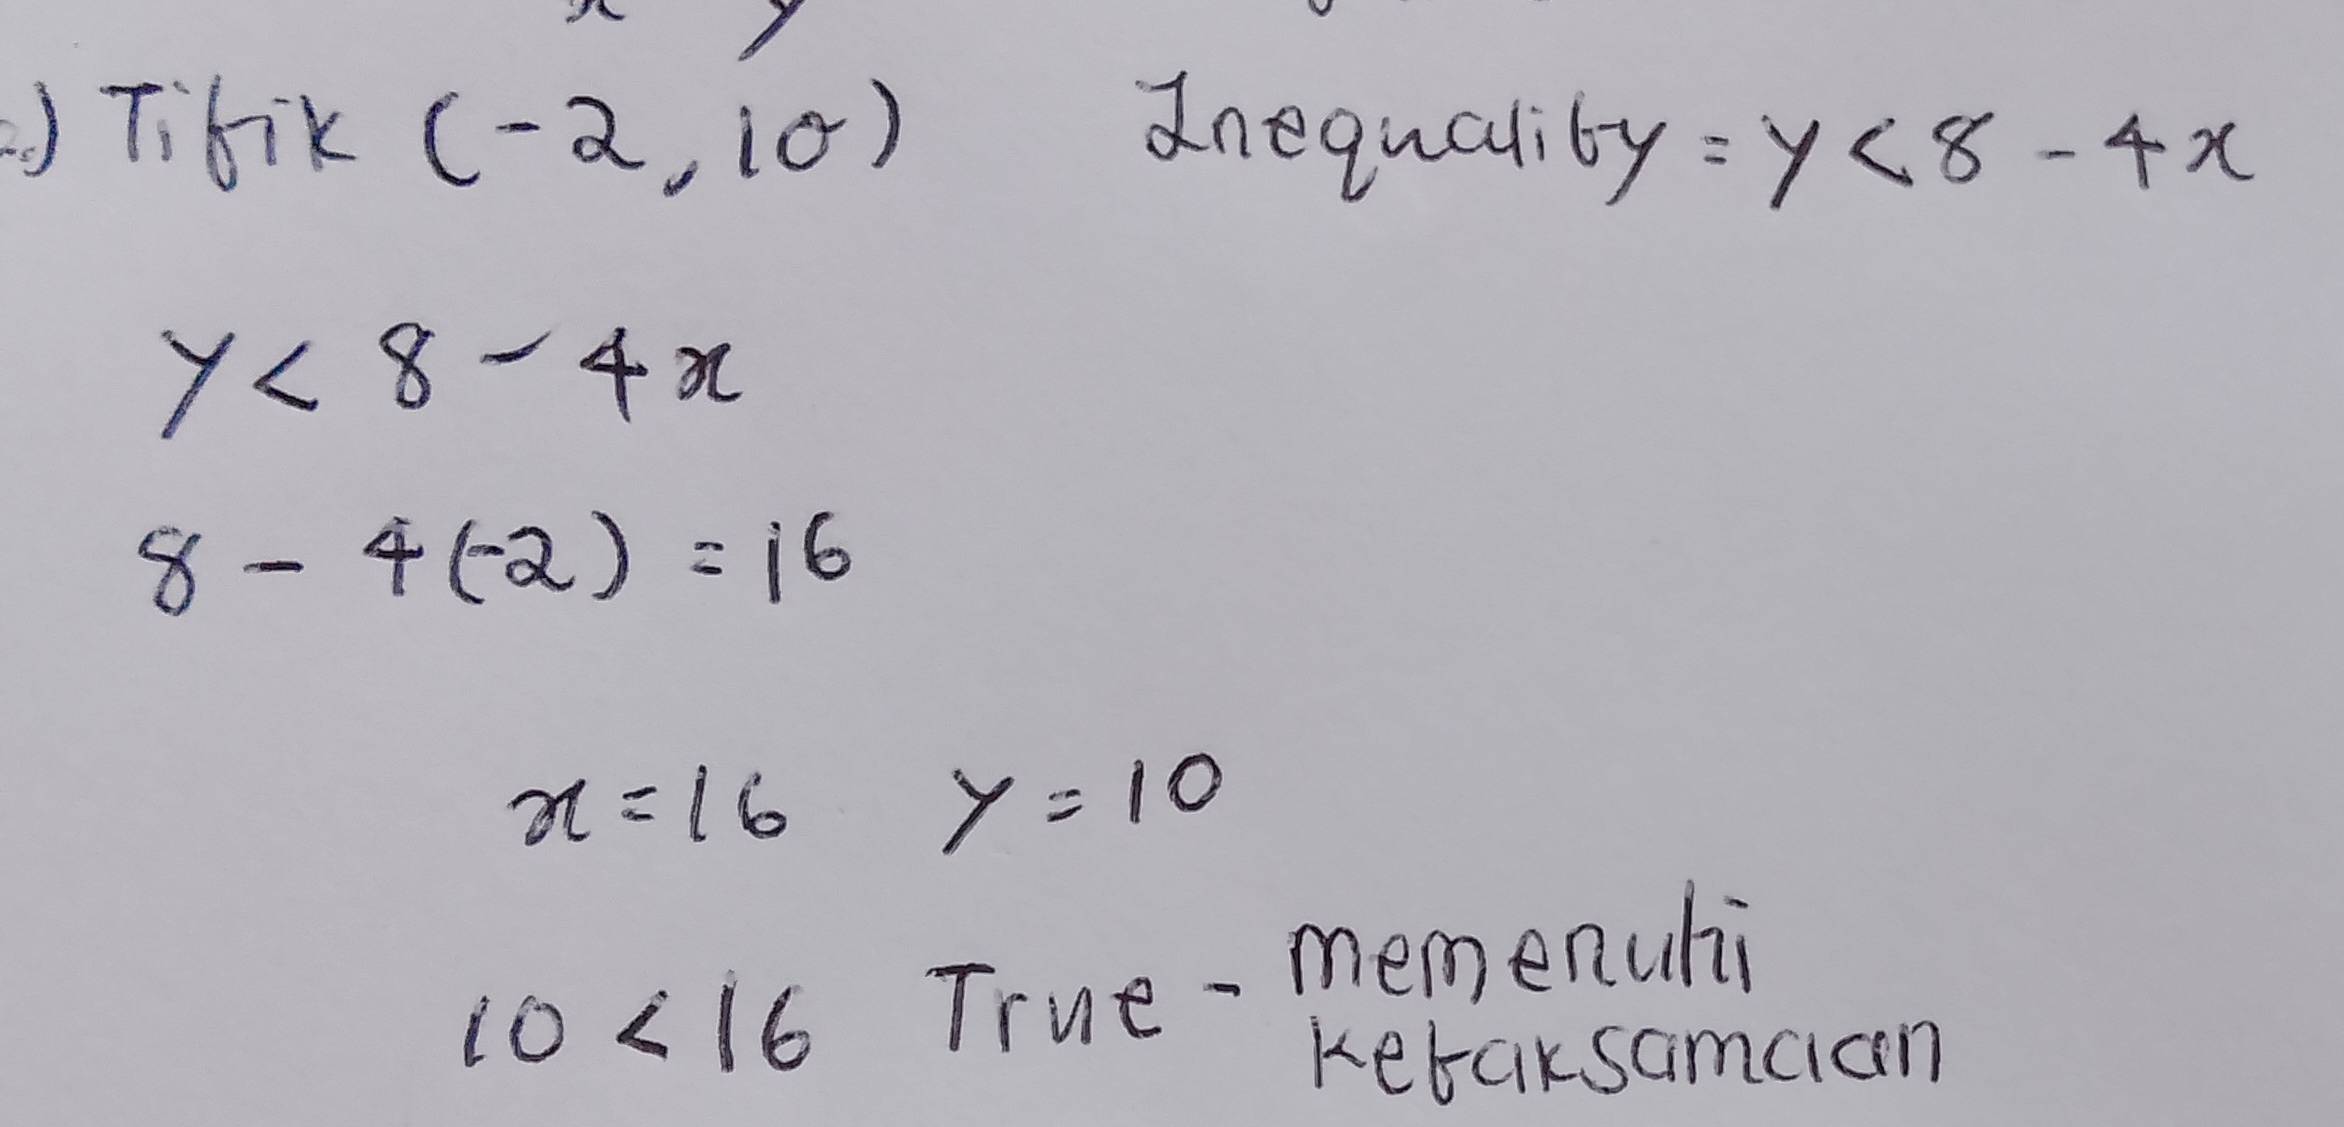 ) Titik (-2, 10) Inequality = y < 8 - 4x
y < 8 - 4x
8 - 4(-2) = 16
x = 16 y = 10
10 < 16 True - memenuhi
ketaksamaan